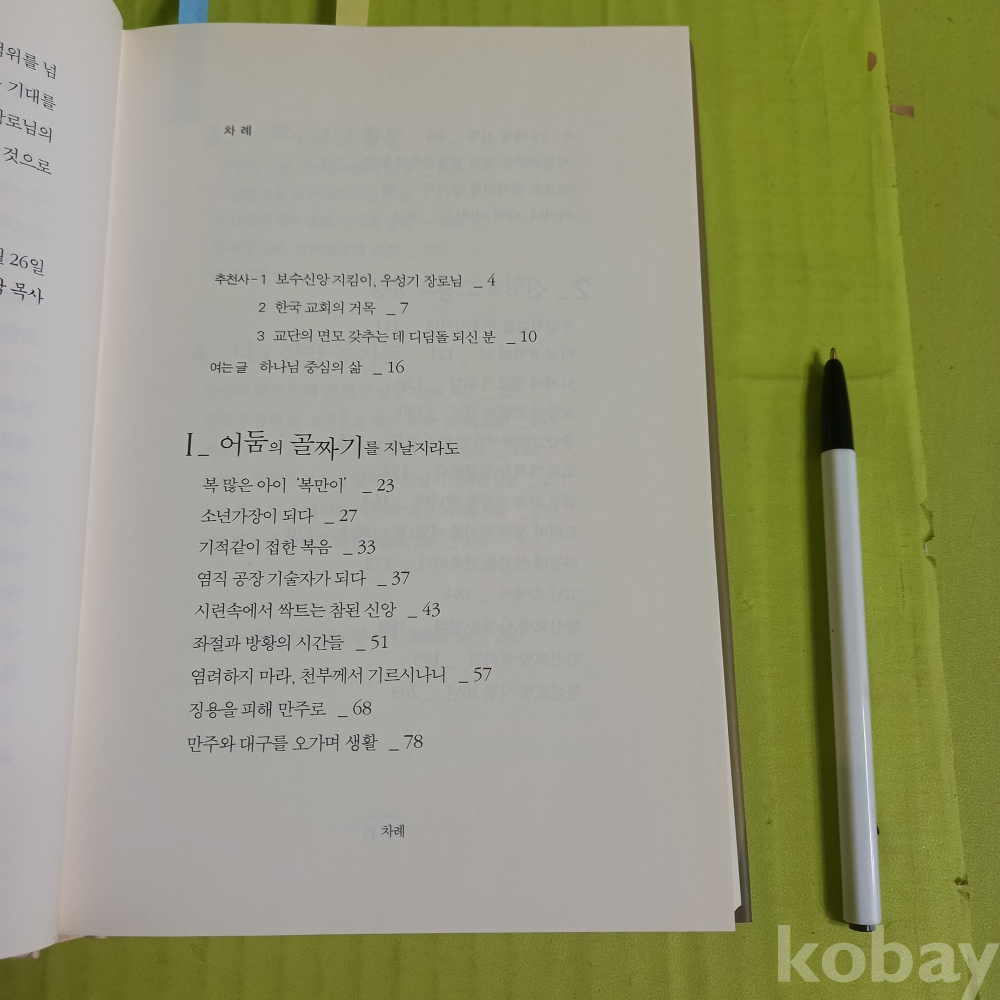 기대를
것으로
26일
목사
차 례
추천사 - 1 보수신앙 지킴이, 우성기 장로님 _ 4
2 한국 교회의 거목 _ 7
3 교단의 면모 갖추는 데 디딤돌 되신 분 _ 10
여는 글 하나님 중심의 삶 _ 16
I _ 어둠의 골짜기를 지날지라도
복 많은 아이 ‘복만이’ _ 23
소년가장이 되다 _ 27
기적같이 접한 복음 _ 33
염직 공장 기술자가 되다 _ 37
시련속에서 싹트는 참된 신앙 _ 43
좌절과 방황의 시간들 _ 51
염려하지 마라, 천부께서 기르시나니 _ 57
징용을 피해 만주로 _ 68
만주와 대구를 오가며 생활 _ 78
차례
kobay